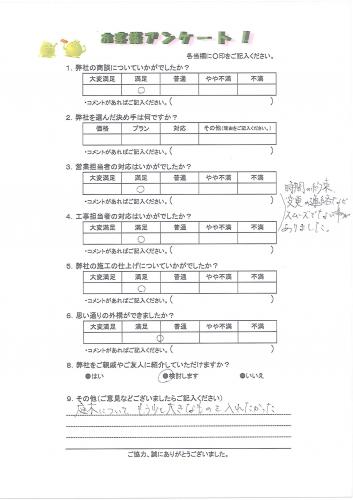 お客様アンケート！
各当欄に〇印をご記入ください。
1. 弊社の商談についていかがでしたか？
大変満足 満足 普通 やや不満 不満
○
・コメントがあればご記入ください。( )
2. 弊社を選んだ決め手は何ですか？
価格 プラン 対応 その他（理由をご記入ください。）
○
・コメントがあればご記入ください。( )
3. 営業担当者の対応はいかがでしたか？
大変満足 満足 普通 やや不満 不満
○
・コメントがあればご記入ください。( )
時間の約束
変更の連絡など
スムーズでない事が
ありました。
4. 工事担当者の対応はいかがでしたか？
大変満足 満足 普通 やや不満 不満
○
・コメントがあればご記入ください。( )
5. 弊社の施工の仕上げについていかがでしたか？
大変満足 満足 普通 やや不満 不満
○
・コメントがあればご記入ください。( )
6. 思い通りの外構ができましたか？
大変満足 満足 普通 やや不満 不満
○
・コメントがあればご記入ください。( )
8. 弊社をご親戚やご友人に紹介していただけますか？
●はい ●検討します ●いいえ
9. その他（ご意見などございましたらご記入ください）
庭木について もう少し大きなものを入れたかった
ご協力、誠にありがとうございました。